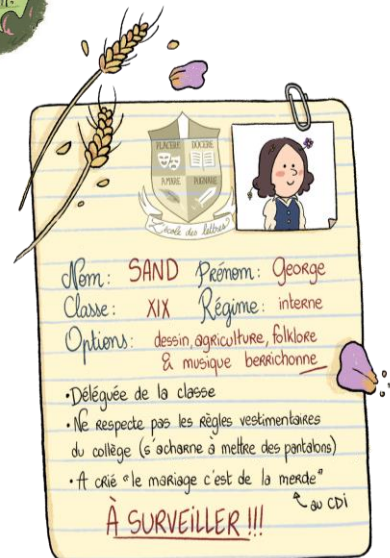 PLACERE DOCERE
AMARE PUGNARE
L'école des lettres
Nom: SAND Prénom: George
Classe: XIX Régime: interne
Options: dessin, agriculture, folklore
& musique berrichonne
•Déléguée de la classe
•Ne respecte pas les règles vestimentaires
du collège (s'acharne à mettre des pantalons)
•A crié "le mariage c'est de la merde"
au CDI
À SURVEILLER !!!